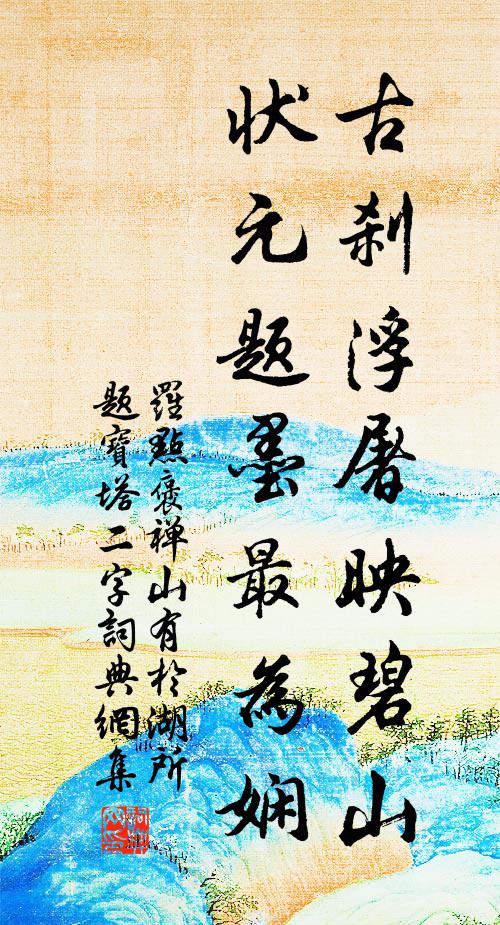 古刹浮屠映碧山
状元题墨最為娴
羅點褒禅山有於湖所
题寶塔二字詞典網集